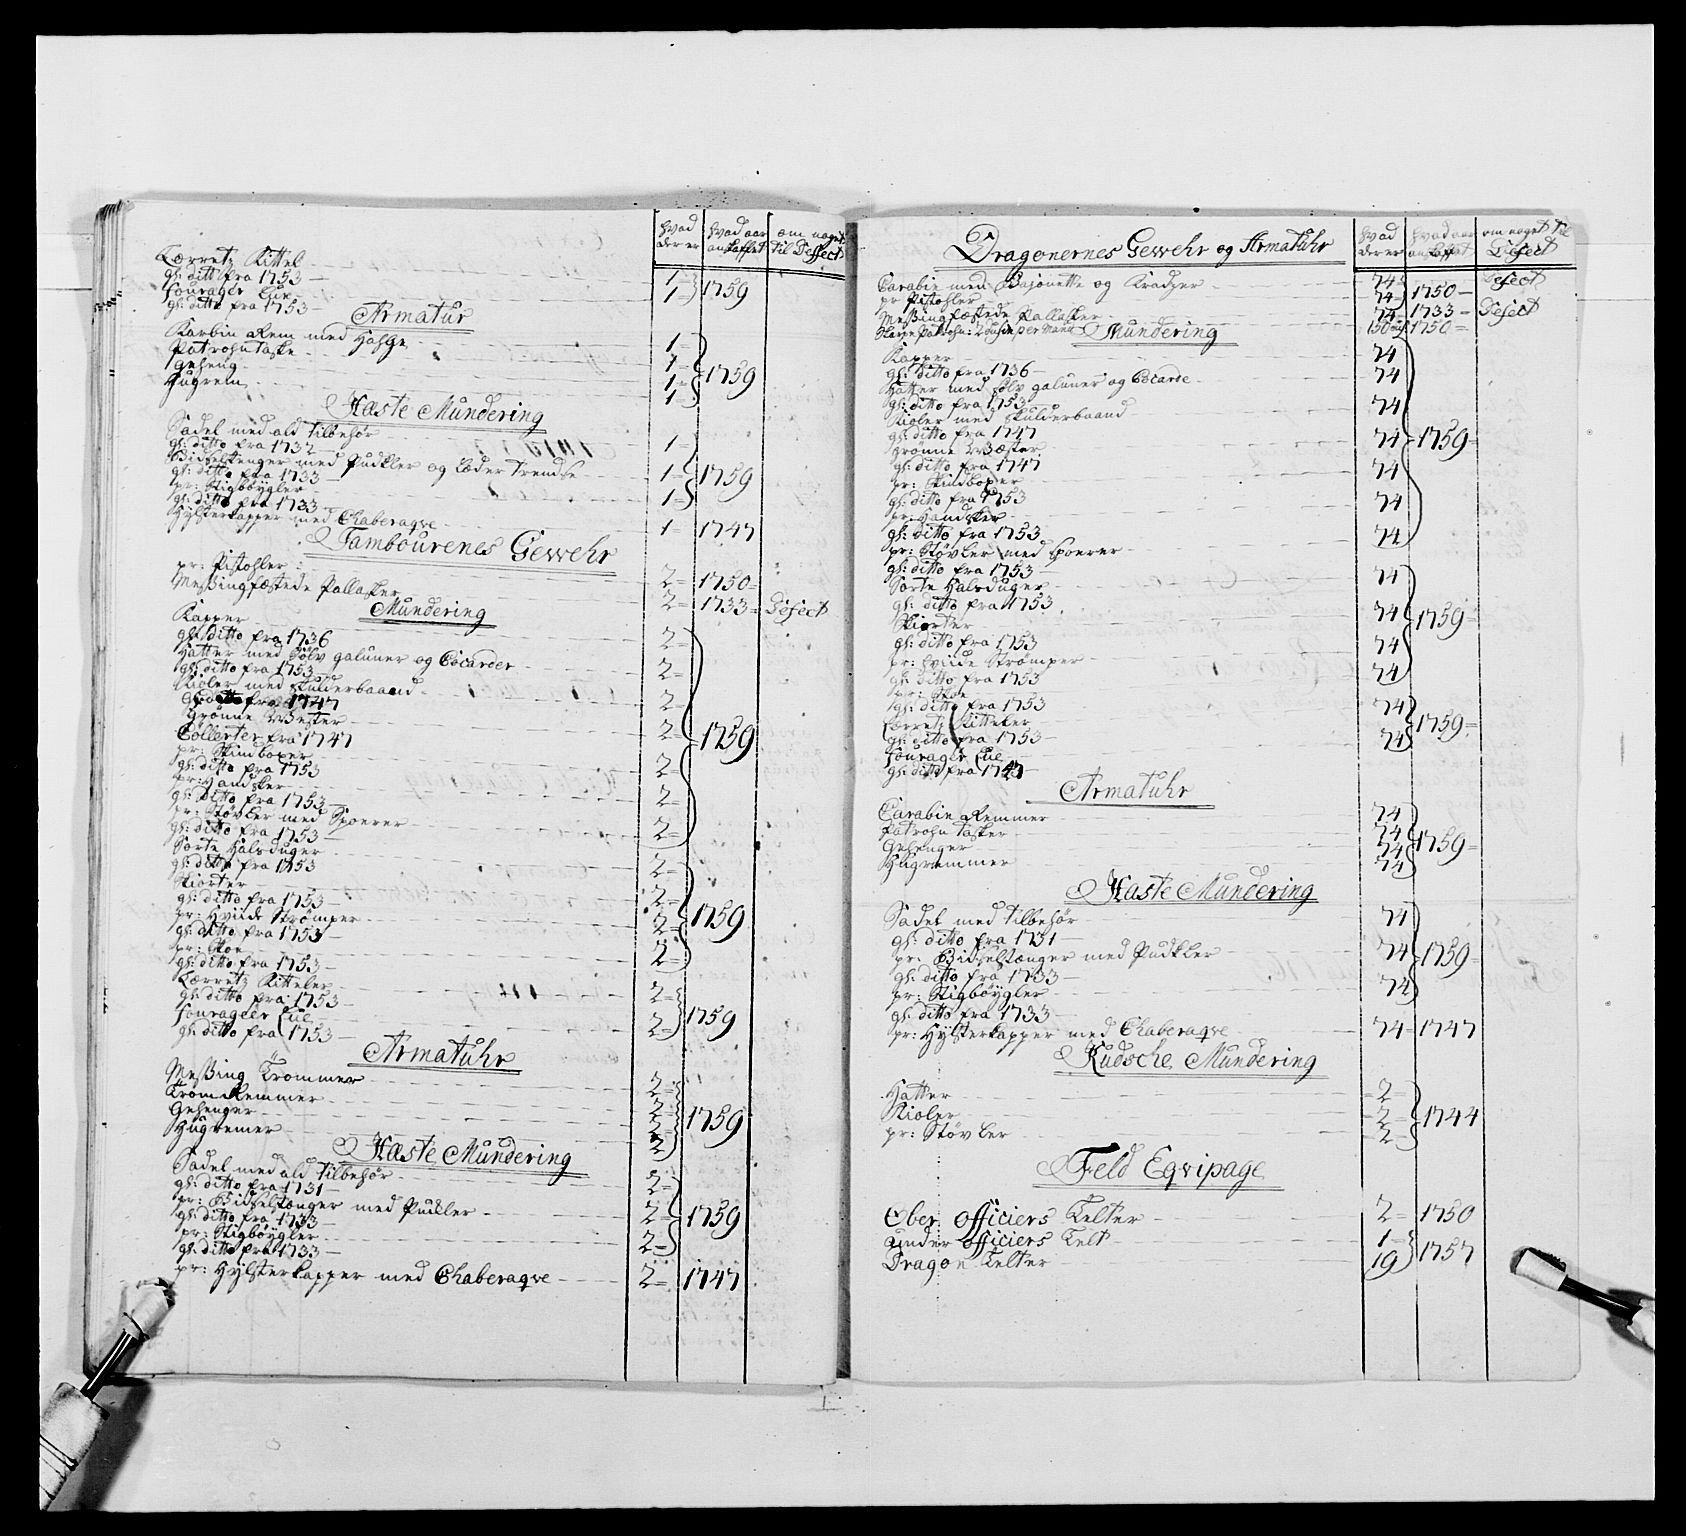 hvad der er
hvad aar anskaffet
om noget til Deffect
Lærretz Kittel
gl: ditto fra 1753 — 1 =
Fourageer Lue
gl: ditto fra 1753 — 1 = 1759
Armatur
Karbin Rem med Hahge 1 =
Patrohntaske 1 =
Geheng 1 = 1759
Hugrem 1 =
Hæste Mundering
Sadel med ald Tilbehør
gl: ditto fra 1732 — 1 =
Bidselstenger med Pudkler og Læder Trendse
gl: ditto fra 1733 — 1 = 1759
pr: Stigbøyler
gl: ditto fra 1733 — 1 =
Hylsterkapper med Chaberaqve 1 = 1747
Tambourenes Gewehr
pr: Pistohler 2 = 1750 =
Messingfæstede Pallasker 2 = 1733 = Defect
Mundering
Kapper
gl: ditto fra 1736 2 =
Hatter med Sølv galuner og Cocarder
gl: ditto fra 1753 — 2 =
Kioler med Skulderbaand
gl: ditto fra 1747 2 =
Grønne Wester
Colletter fra 1747 2 = 1759
pr: Skindboxer
gl: ditto fra 1753 2 =
pr: Handsker
gl: ditto fra 1753 — 2 =
pr: Støvler med Spoerer
gl: ditto fra 1753 — 2 =
Sorte Halsduger
gl: ditto fra 1753 2 =
Skiorter
gl: ditto fra 1753 — 2 =
pr: Hviide Strømper
gl: ditto fra 1753 — 2 = 1759
pr: Skoe
gl: ditto fra 1753 — 2 =
Lærretz Kitteler
gl: ditto fra 1753 — 2 =
Fourageer Lue
gl: ditto fra 1753 — 2 = 1759
Armatuhr
Messing Trommer 2 =
Tromremmer 2 =
Gehenger 2 = 1759
Hugremer 2 =
Hæste Mundering
Sadel med ald Tilbehør
gl: ditto fra 1731 — 2 =
pr: Bidselstænger med Puckler
gl: ditto fra 1733 — 2 = 1759
pr: Stigbøygler
gl: ditto fra 1733 — 2 =
pr: Hylsterkapper med Chaberaqve 2 = 1747
Dragonernes Gewehr og Armatuhr
hvad der er
hvad aar anskaffet
om noget til Defect
Carabin med Bajonette og Kradzer 74 = Defect
pr Pistohler 74 = 1750 =
Messingfæstede Pallasker 74 = 1733 = Defect
Mundering
Kapper
gl: ditto fra 1736 — 74
Hatter med Sølv galuner og Cocarde
gl: ditto fra 1753 — 74
Kioler med Skulderbaand
gl: ditto fra 1747 74
Grønne Wæster
gl: ditto fra 1747 74 = 1759 =
pr: Skindboxer
gl: ditto fra 1753 74
pr: Handsker
gl: ditto fra 1753 74
pr: Støvler med Spoerer
gl: ditto fra 1753 74
Sorte Halsduger
gl: ditto fra 1753 74
Skiorter
gl: ditto fra 1753 74 1759 =
pr: hviide Strømper
gl: ditto fra 1753 74
pr: Skoe
gl: ditto fra 1753 74
Lærretz Kitteler
gl: ditto fra 1753 — 74
Fourageer Lue
gl: ditto fra 74 1759 =
Armatuhr
Carabin Remmer 74
Patrohn Tasker 74
Gehenger 74 1759 =
Hugremmer 74
Hæste Mundering
Sadel med Tilbehør
gl: ditto fra 1731 — 74
pr: Bidselstænger med Pudkler
gl: ditto fra 1733 — 74 1759 =
pr: Stigbøygler
gl: ditto fra 1733 — 74
pr: Hylsterkapper med Chaberaqve 74 = 1747
Kudsche Mundering
Hatter 2 =
Kioler 2 = 1744
pr: Støvler 2 =
Feld Eqvipage
Ober Officiers Telter 2 = 1750
Under Officiers Telt 1 =
Dragon Telter 19 1757